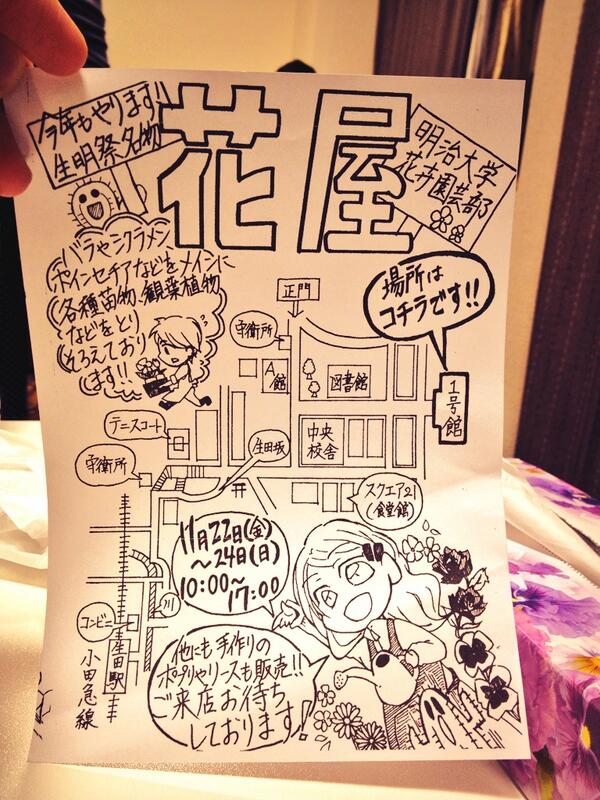 今年もやります!!
生明祭名物
花屋
明治大学
花卉園芸部
バラやシクラメン
ポインセチアなどをメインに
各種苗物、観葉植物
などをとり
そろえており
ます!!
場所は
コチラです!!
正門
守衛所
A館
図書館
1号館
テニスコート
生田坂
中央
校舎
守衛所
スクエア21
(食堂館)
11月22日(金)
~24日(日)
10:00~
17:00
川
コンビニ
生田駅
小田急線
他にも手作りの
ポプリやリースも販売!!
ご来店お待ち
しております!